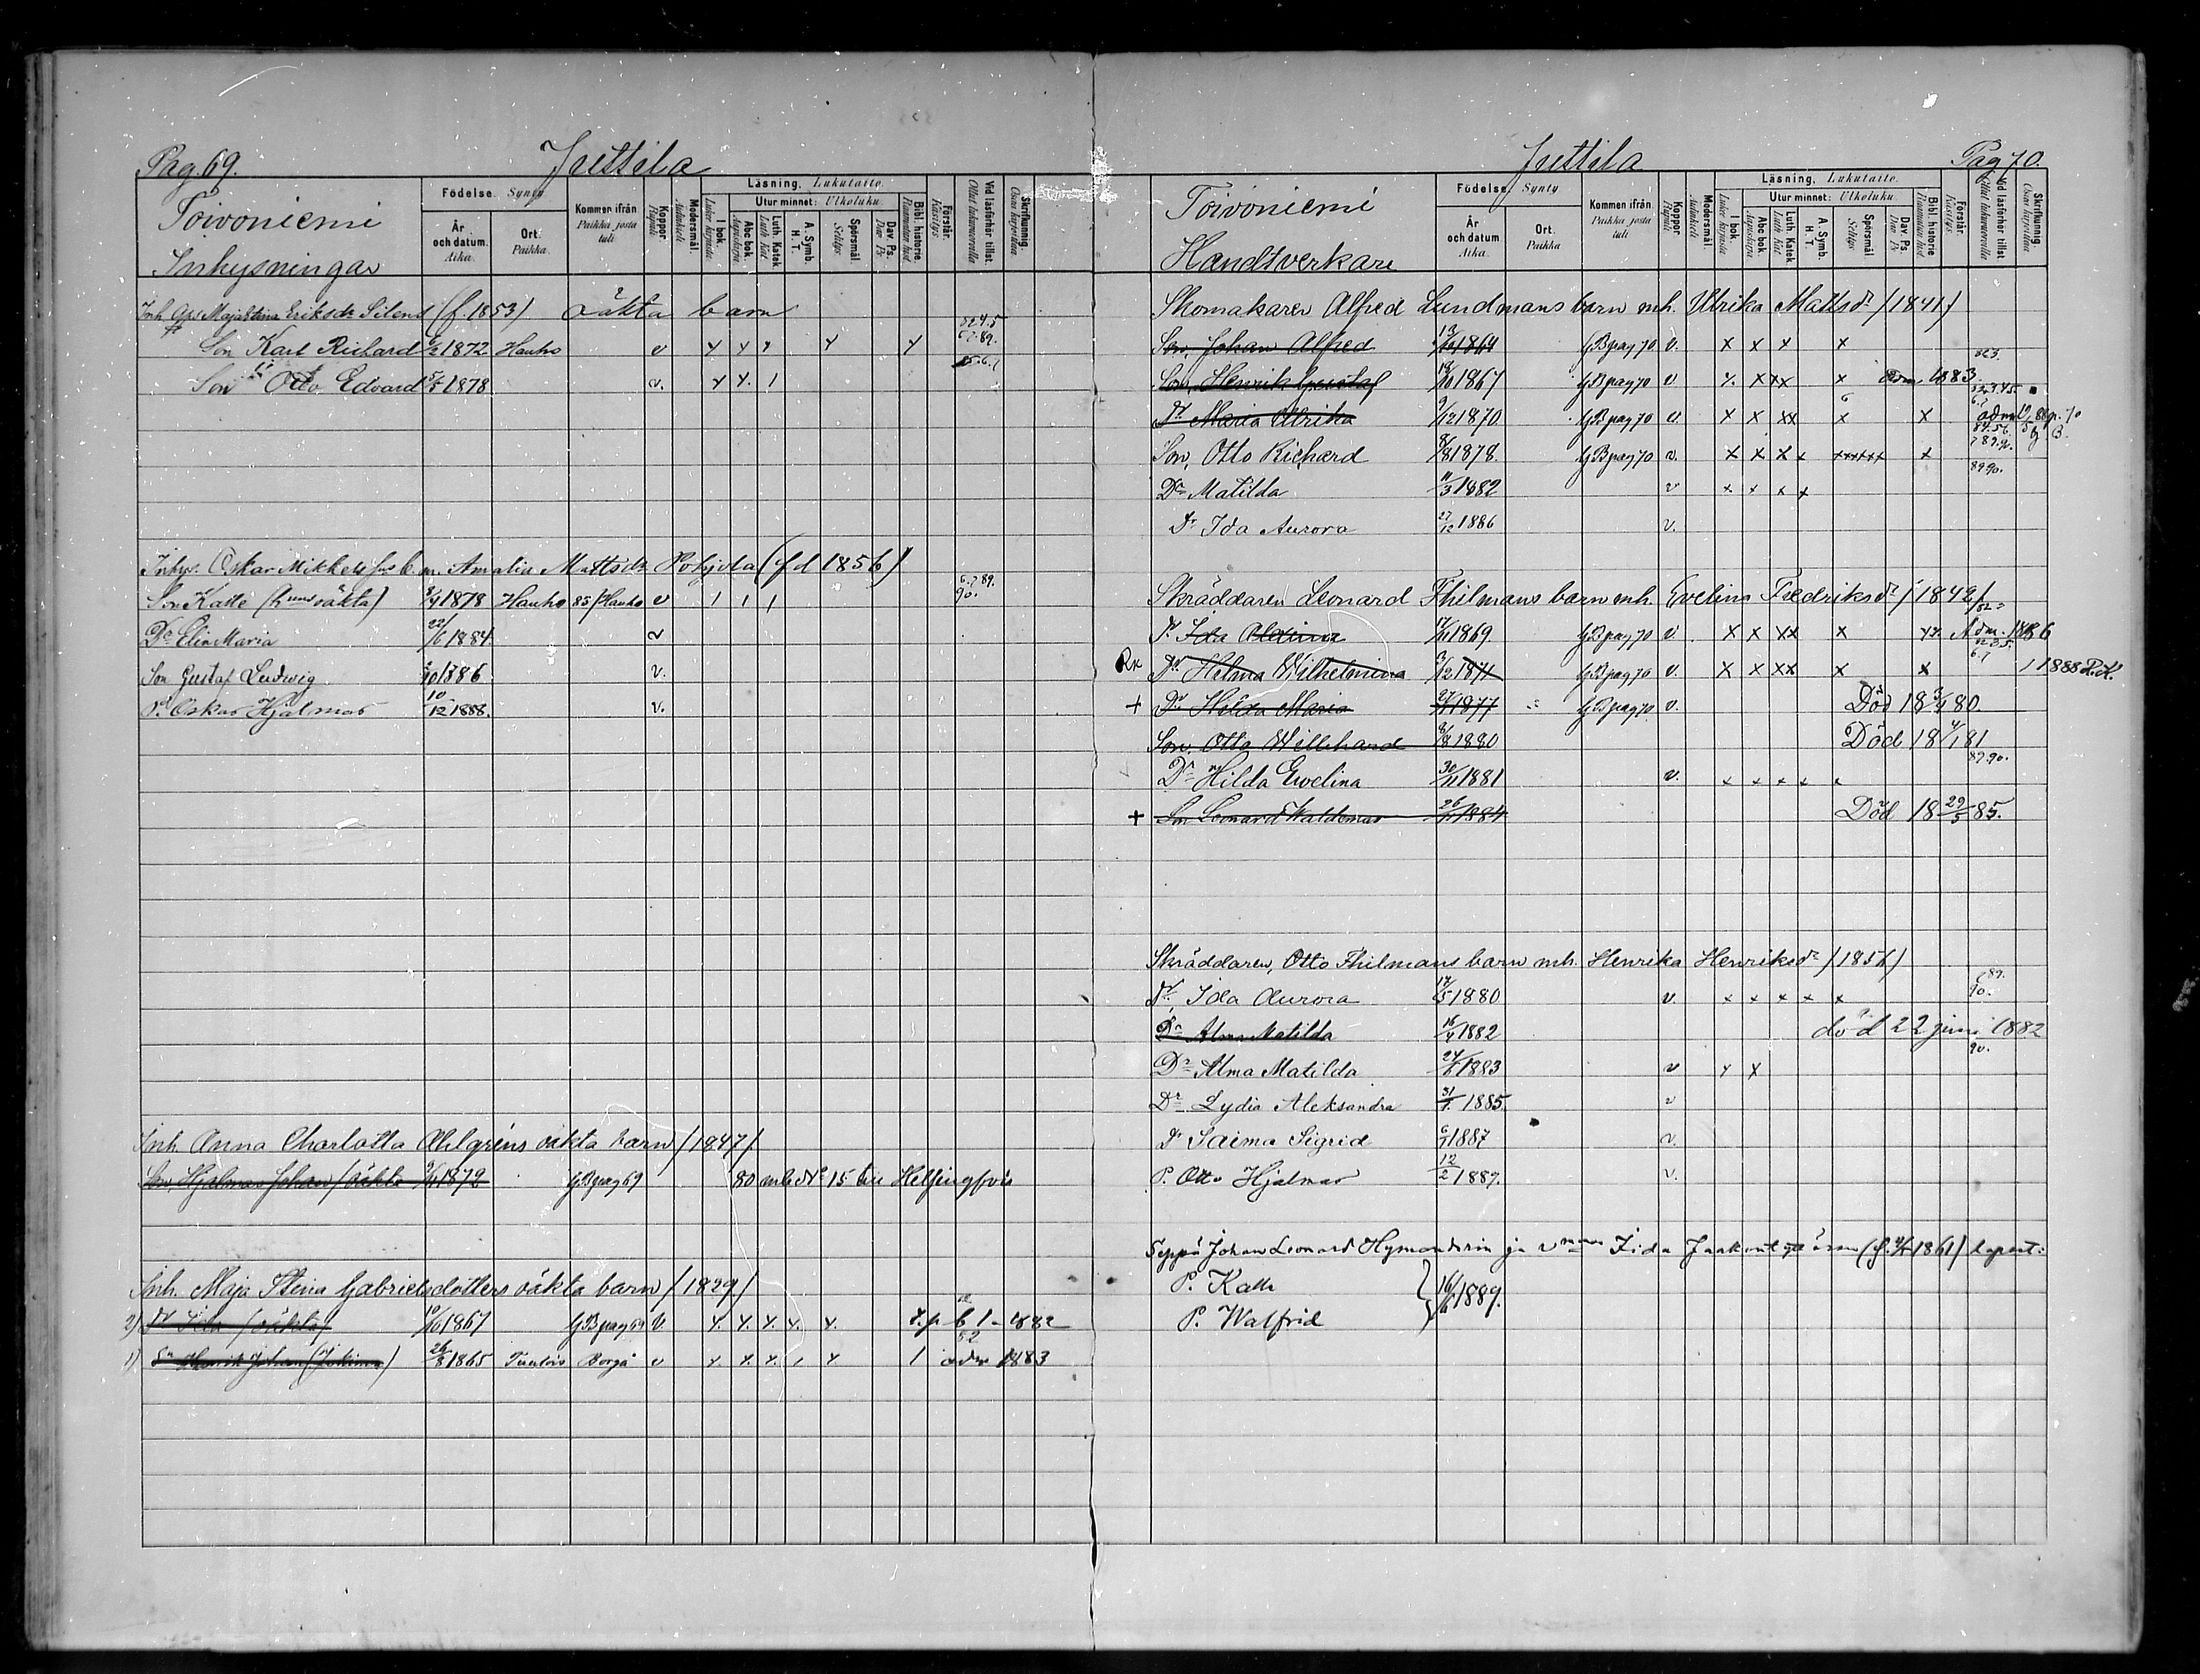 Pag. 69.
Juttila
Toivoniemi
Inhysningar
Födelse. Synty
År och datum. Aika.
Ort. Paikka.
Kommen ifrån. Paikka josta tuli
Koppor Rupuli
Modersmål. Äidinkieli
Läsning. Lukutaito.
I bok. Lukee kirjasta
Utur minnet: Ulkoluku.
Abc bok. Aapiskirja.
Luth. Katek. Luth Kat
A. Symb. H. T.
Spörsmål. Selitys.
Dav. Ps. Dav. Ps
Bibl. historie Raamatun hist.
Förstår. Käsitys.
Vid läsförhör tillst. Ollut lukuvuorolla
Skriftkunnig. Osaa kirjoittaa
Inh. Maja Stina Eriksdr Silens (f. 1853) oäkta barn
Son Karl Richard 1872 Hauho v
Son Otto Edvard 5/5 1878 v.
Inhys. Oskar Mikkels b. m. Amalia Mattsdr Pohjola (fd 1856)
Son Kalle (huns oäkta) 8/4 1878 Hauho 85 Hauho v 1 1 1 6.7.89. 90.
Dr Elin Maria 22/6 1884 v
Son Gustaf Ludvig 1886 v.
P. Oskar Hjalmar 10/12 1888. v.
Inh. Anna Charlotta Ahlgréns oäkta barn /1847/
Son, Hjalmar Johan /oäkta 1872 GB pag 69 80 m b No 15 till Helsingfors
Inh. Maja Stina Gabrielsdotters oäkta barn /1829/
2) Dr Ida /oäkta/ 10/10 1867 GB pag 69 v. 1882
1) Sn Henrik Johan 26/8 1865 Tuulois Borgå v adm 1883
Juttila
Pag 70.
Toivoniemi
Handtverkare
Födelse. Synty
År och datum Aika.
Ort. Paikka
Kommen ifrån. Paikka josta tuli
Koppor Rupuli
Modersmål. Äidinkieli
Läsning. Lukutaito.
I bok. Lukee kirjasta
Utur minnet: Ulkoluku.
Abc bok. Aapiskirja.
Luth. Katek. Luth Kat
A. Symb. H. T.
Spörsmål Selitys
Dav. Ps. Dav. Ps
Bibl. historie Raamatun hist.
Förstår. Käsitys.
Vid läsförhör tillst. Ollut lukuvuorolla
Skriftkunnig. Osaa kirjoittaa
Skomakaren Alfred Lundmans barn mh. Ulrika Mattsdr /1841/
Son, Johan Alfred 13/10 1864 GB pag 70 v. x x x x
Son, Henrik Gustaf 19/10 1867 GB pag 70 v x x xx x adm 1883
Dr Maria Ulrika 9/12 1870 GB pag 70 v. x x xx x x
Son, Otto Richard 8/8 1878 GB pag 70 v. x x x x xxxxxx x
Dr Matilda 11/3 1882 v x x x x 89 90.
Dr Ida Aurora 27/12 1886 v.
Skräddaren Leonard Thilmans barn mh. Evelina Fredriksdr /1842/
Dr Ida Alexina 17/11 1869 GB pag 70 v. x x xx x Adm. 1886
Rk Dr Helma Wilhelmina 3/12 1871 GB pag 70 v. x x xx x x 1 1888 R.K.
+ Dr Hilda Maria 1877 GB pag 70 v. Död 18 3/4 80.
Son, Otto Willehard 8/8 1880 Död 18 4/1 81
Dr Hilda Ewelina 30/11 1881 v. x x x x x 89 90.
+ Son Leonard Waldemar 1884 Död 18 29/5 85.
Skräddaren, Otto Thilmans barn mh. Henrika Henriksdr /1857/
Dr Ida Aurora 17/5 1880 v x x x x x 89. 90.
Dr Alma Matilda 16/4 1882 död 22 juni 1882
Dr Alma Matilda 24/6 1883 v x x 90.
Dr Lydia Aleksandra 31/1 1885. v
Dr Saima Sigrid 1887 v.
P. Otto Hjalmar 12/2 1889. v.
Seppä Johan Leonard Hymanderin ja v Iida Jaakontytären (f. 1861) lapset:
P. Kalle 16/6 1889.
P. Walfrid